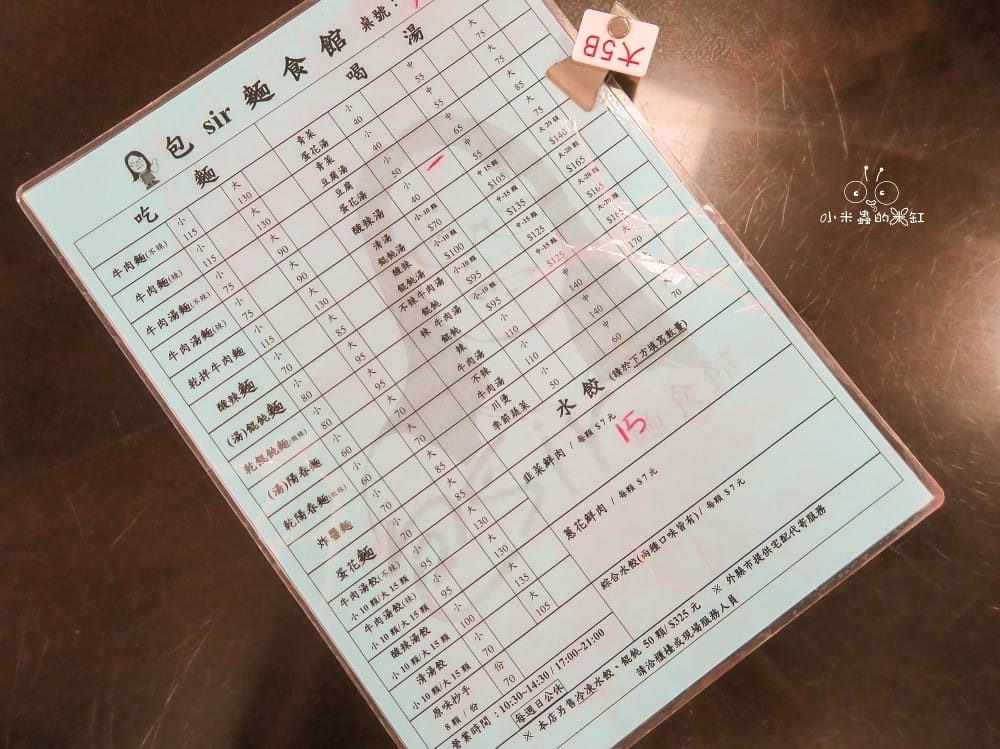 大5B
包 sir 麵食館 桌號：
吃麵
牛肉麵(不辣) 小 115 大 130
牛肉麵(辣) 小 115 大 130
牛肉湯麵(不辣) 小 75 大 90
牛肉湯麵(辣) 小 75 大 90
乾拌牛肉麵 小 115 大 130
酸辣麵 小 70 大 85
(湯)餛飩麵 小 80 大 95
乾餛飩麵(微辣) 小 80 大 95
(湯)陽春麵 小 60 大 70
乾陽春麵(微辣) 小 60 大 70
炸醬麵 小 70 大 85
蛋花麵 小 70 大 85
牛肉湯餃(不辣) 小 10 顆/大 15 顆 小 95 大 130
牛肉湯餃(辣) 小 10 顆/大 15 顆 小 95 大 130
酸辣湯餃 小 10 顆/大 15 顆 小 100 大 135
清湯餃 小 10 顆/大 15 顆 小 70 大 105
原味抄手 8 顆 / 份 份 70
喝湯
青菜蛋花湯 小 40 中 55 大 75
青菜豆腐湯 小 40 中 55 大 75
豆腐蛋花湯 小 50 中 65 大 85
酸辣湯 小 40 中 55 大 75
清湯餛飩湯 小-10 顆 $70 中-15 顆 $105 大-20 顆 $140
酸辣餛飩湯 小-10 顆 $100 中-15 顆 $135 大-20 顆 $165
不辣牛肉湯餛飩 小-10 顆 $95 中-15 顆 $125 大-20 顆 $165
辣牛肉湯餛飩 小-10 顆 $95 中-15 顆 $125 大-20 顆 $165
辣牛肉湯 小 110 中 140 大 170
不辣牛肉湯 小 110 中 140
川燙季節蔬菜 小 50 中 60 70
水餃 (請於下方填寫數量)
韭菜鮮肉 / 每顆 $ 7 元 15
蔥花鮮肉 / 每顆 $ 7 元
綜合水餃(兩種口味皆有)/ 每顆 $ 7 元
營業時間：10:30~14:30 / 17:00~21:00
每週日公休
※ 本店另售冷凍水餃、餛飩 50 顆/ $325 元 ※ 外縣市提供宅配代寄服務
請洽櫃檯或現場服務人員
小米蟲的米缸